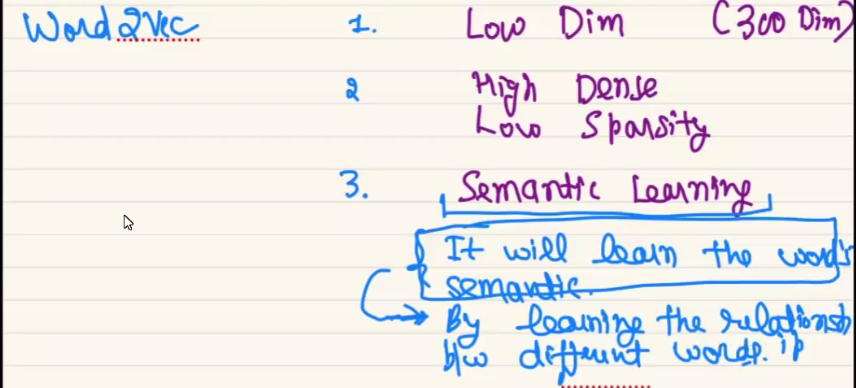 Word2Vec 1. Low Dim (300 Dim)
2 High Dense
Low Sparsity
3. Semantic Learning
It will learn the word's
semantic.
By learning the relationsh
b/w different words.